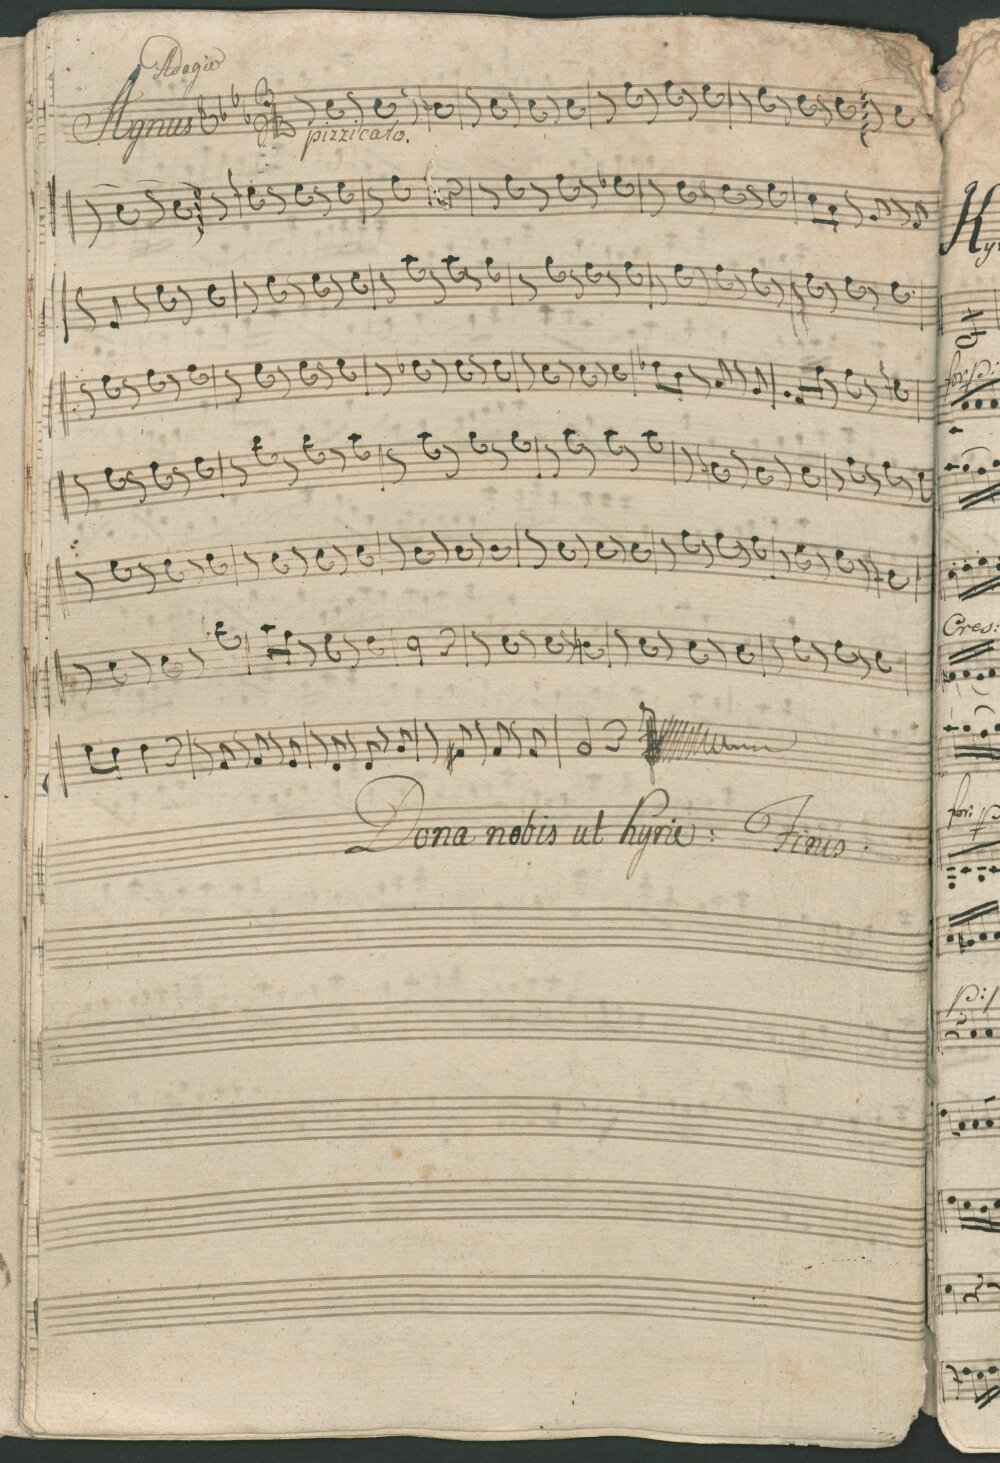 Adagio
Agnus
pizzicato.
Dona nobis ut kyrie: Finis.
for: p:
Cres:
for: p
p: